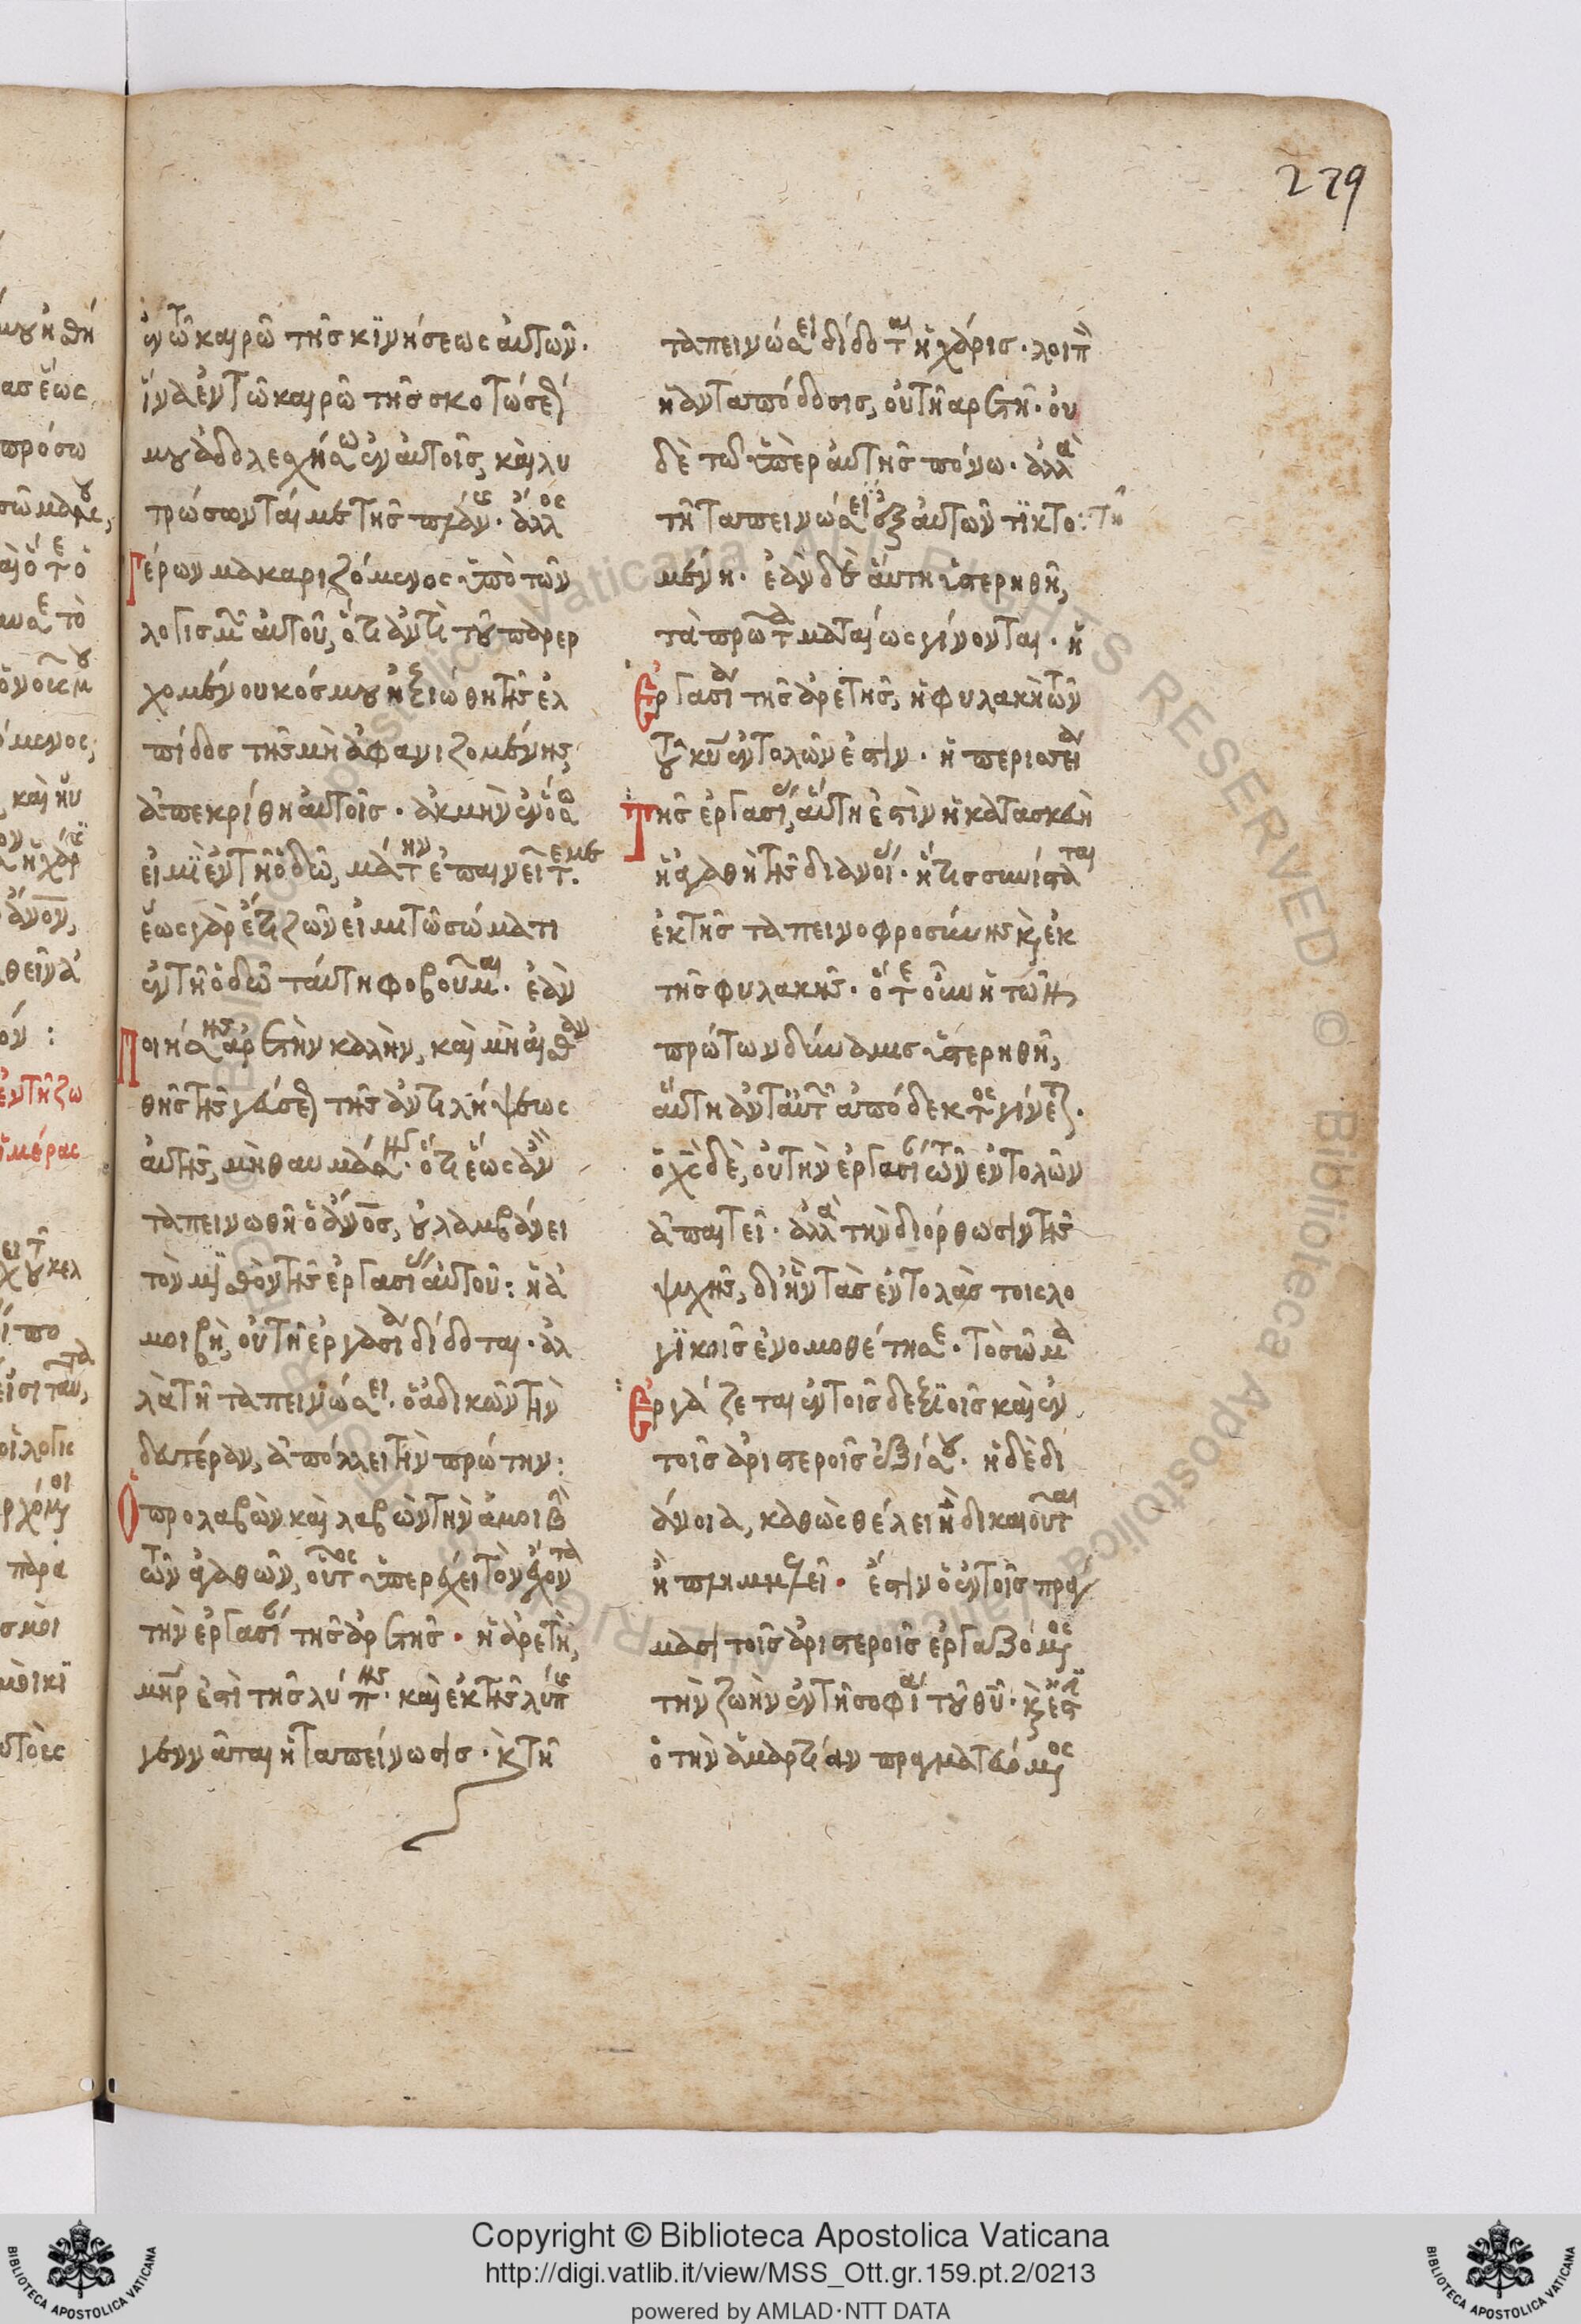 229
ἐν τῶ καιρῶ τῆς κϊνήσεως αὐτῶν.
ἵνα ἐν τῶ καιρῶ τῆς σκοτώσεώς
μου ἀδολεσχήσω ἐν αὐτοῖς, καὶ λυ
τρώσωνταί με τῆς πλάνης. ἄλλος
Γέρων μακαριζόμενος ὑπὸ τῶν
λογισμῶν αὐτοῦ, ὅτι ἀντὶ τοῦ παρερ
χομένου κόσμου ἠξιώθη τῆς ἐλ
πίδος τῆς μὴ ἀφανιζομένης,
ἀπεκρίθη αὐτοῖς. ἀκμὴν ἐν ὅσω
εἰμὶ ἐν τῆ ὁδῶ, μάτην ἐπαινεῖτέ με.
ἕως γὰρ ἔτι ζῶν εἰμι τῶ σώματι
ἐν τῆ ὁδῶ ταύτη φοβοῦμαι. ἐὰν
Ποιήσης ἀρετὴν καλὴν, καὶ μὴ αἰσθαν
θῆς τῆς γεύσεως τῆς ἀντιλήψεως
αὐτῆς, μὴ θαυμάσης. ὅτι ἕως ἂν
ταπεινωθῆ ὁ ἄνος, οὐ λαμβάνει
τὸν μισθὸν τῆς ἐργασίας αὐτοῦ: ἡ ἀ
μοιβὴ, οὐ τῆ ἐργασία δίδοται. ἀλ
λὰ τῆ ταπεινώσει. ὁ ἀδικῶν τὴν
δευτέραν, ἀπόλλει τὴν πρώτην:
Ὁ προλαβὼν καὶ λαβὼν τὴν ἀμοιβὴν
τῶν ἀγαθῶν, οὗτος ὑπερέχει τὸν ἔχοντα
τὴν ἐργασίαν τῆς ἀρετῆς. ἡ ἀρετὴ,
μῆηρ ἐστὶ τῆς λύπης. καὶ ἐκ τῆς λύπης
γεννᾶται ἡ ταπείνωσις. καὶ τῆ
ταπεινώσει δίδοται ἡ χάρις. λοιπὸν
ἡ ἀνταπόδοσις, οὐ τῆ ἀρετῆ. οὐ
δὲ τῶ ὑπὲρ αὐτῆς πόνω. ἀλλὰ
τῆ ταπεινώσει τῆ ἐξ αὐτῶν τϊκτο:
μένη. ἐὰν δὲ αὕτη ὑστερηθῆ,
τὰ πρῶτα ματαίως γίνονται. ἡ
Ἐργασία τῆς ἀρετῆς, ἡ φυλακὴ τῶν
τοῦ κυ ἐντολῶν ἐστιν. ἡ περισσεία
Τῆς ἐργασίας, αὕτη ἐστὶν ἡ κατασκευὴ
ἡ ἀγαθὴ τῆς διανοίας. ἥτις συνίσταται
ἐκ τῆς ταπεινοφροσύνης καὶ ἐκ
τῆς φυλακῆς. ὅτε οὖν ἡ τῶν
πρώτων δύναμις ὑστερηθῆ,
αὕτη ἀντ αὐτῶν ἀπόδεκτος γίνεται.
ὁ χς δὲ, οὐ τὴν ἐργασίαν τῶν ἐντολῶν
ἀπαιτεῖ. ἀλλὰ τὴν διόρθωσιν τῆς
ψυχῆς, δι ἣν τὰς ἐντολὰς τοῖς λο
γϊκοῖς ἐνομοθέτησε. τὸ σῶμα
Ἐργάζεται ἐν τοῖς δεξιοῖς καὶ ἐν
τοῖς ἀριστεροῖς ἐξίσου. ἡ δὲ δι
άνοια, καθὼς θέλει ἢ δικαιοῦται
ἢ πλημμελεῖ. ἔστιν ὁ ἐν τοῖς πράγ
μασι τοῖς ἀριστεροῖς ἐργαζόμενος
τὴν ζωὴν ἐν τῆ σοφία τοῦ θυ. καὶ ἔστι
ὁ τὴν ἁμαρτίαν πραγματευόμενος
Copyright © Biblioteca Apostolica Vaticana
http://digi.vatlib.it/view/MSS_Ott.gr.159.pt.2/0213
powered by AMLAD·NTT DATA